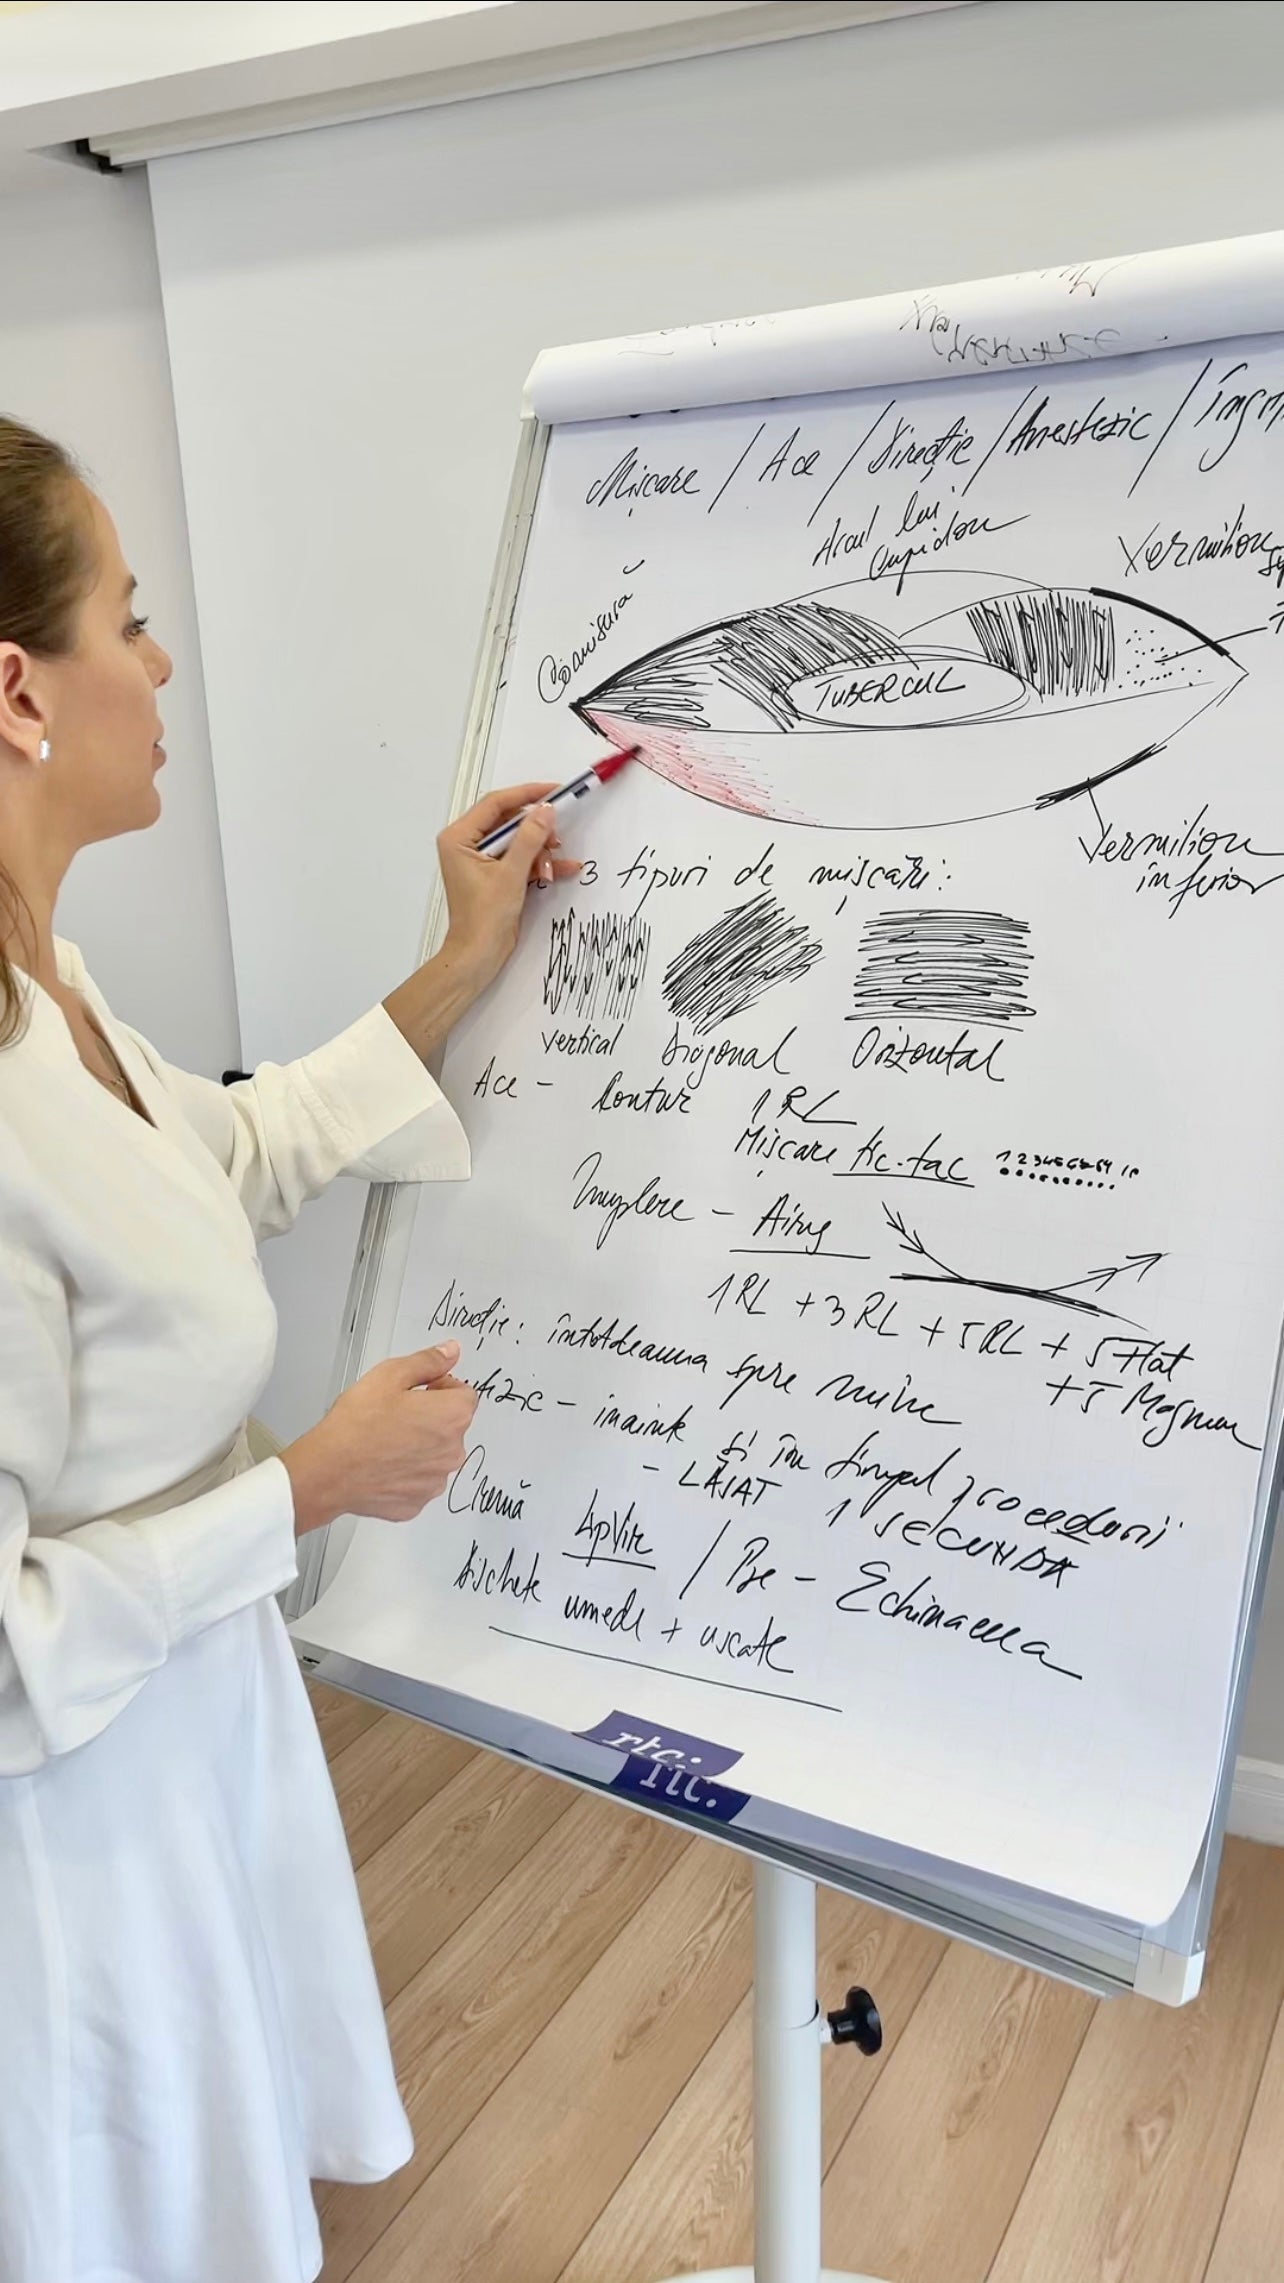 Mișcare / Ace / Direcție / Anestezic /
Arcul lui
Cupidon
Vermilion
Comisură
TUBERCUL
Vermilion
inferior
3 tipuri de mișcări:
Vertical Diagonal Orizontal
Ace - Contur 1RL
Mișcare tic-tac 1 2 3 4 5 6 7 8 9 10
Umplere -
1RL + 3RL + 5RL + 5 Flat
+ 5 Magnum
Direcție: întotdeauna spre mine
- inainte și în timpul procedurii
- LĂSAT 1 SECUNDĂ
Cremă / Pre - Echinaceea
Dischete umede + uscate
rtc.